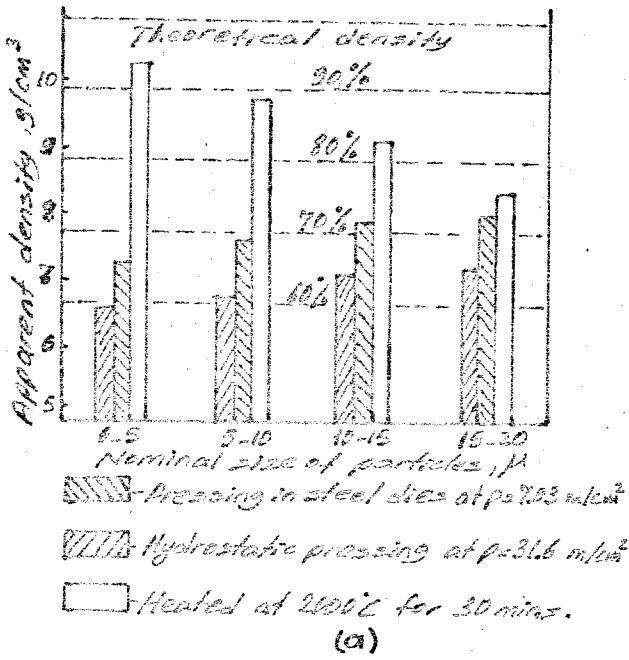 Theoretical density
Apparent density, g/cm³
10
9
8
7
6
5
90%
80%
70%
60%
0-5
5-10
10-15
15-20
Nominal size of particles, μ
Pressing in steel dies at p=7.03 m/cm²
Hydrostatic pressing at p=31.6 m/cm²
Heated at 2000°C for 30 mins.
(a)